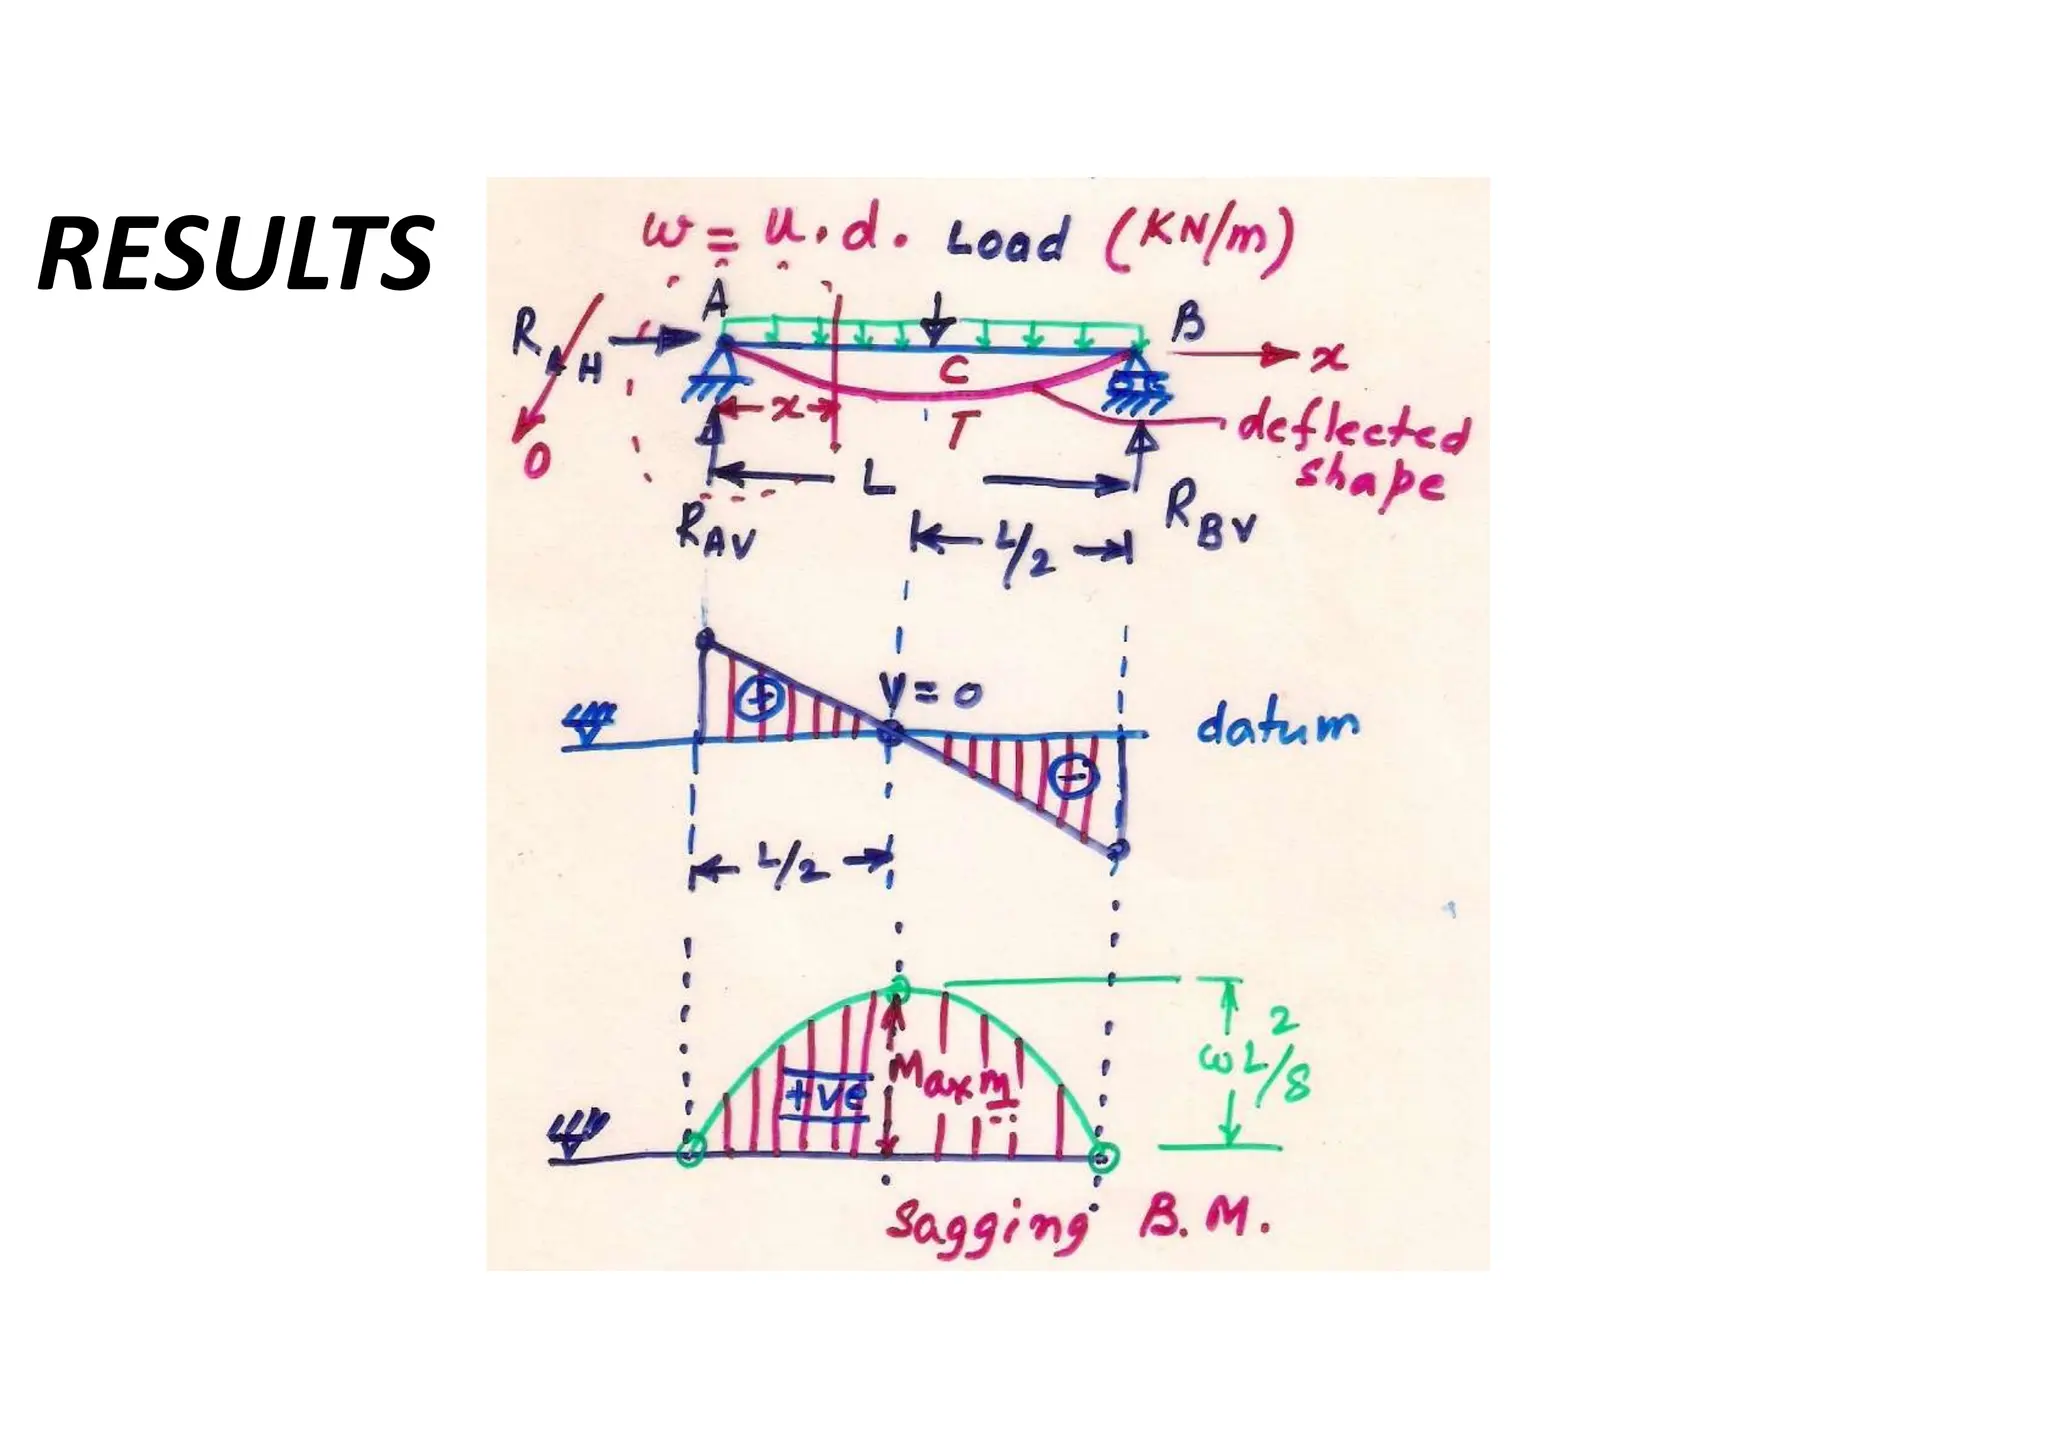 RESULTS
w = u.d. Load (KN/m)
A
B
R AH
x
C
x
T
deflected
shape
O
L
R AV
R BV
L/2
V = 0
+
datum
-
L/2
+ve
Max m
wL²/8
Sagging B.M.